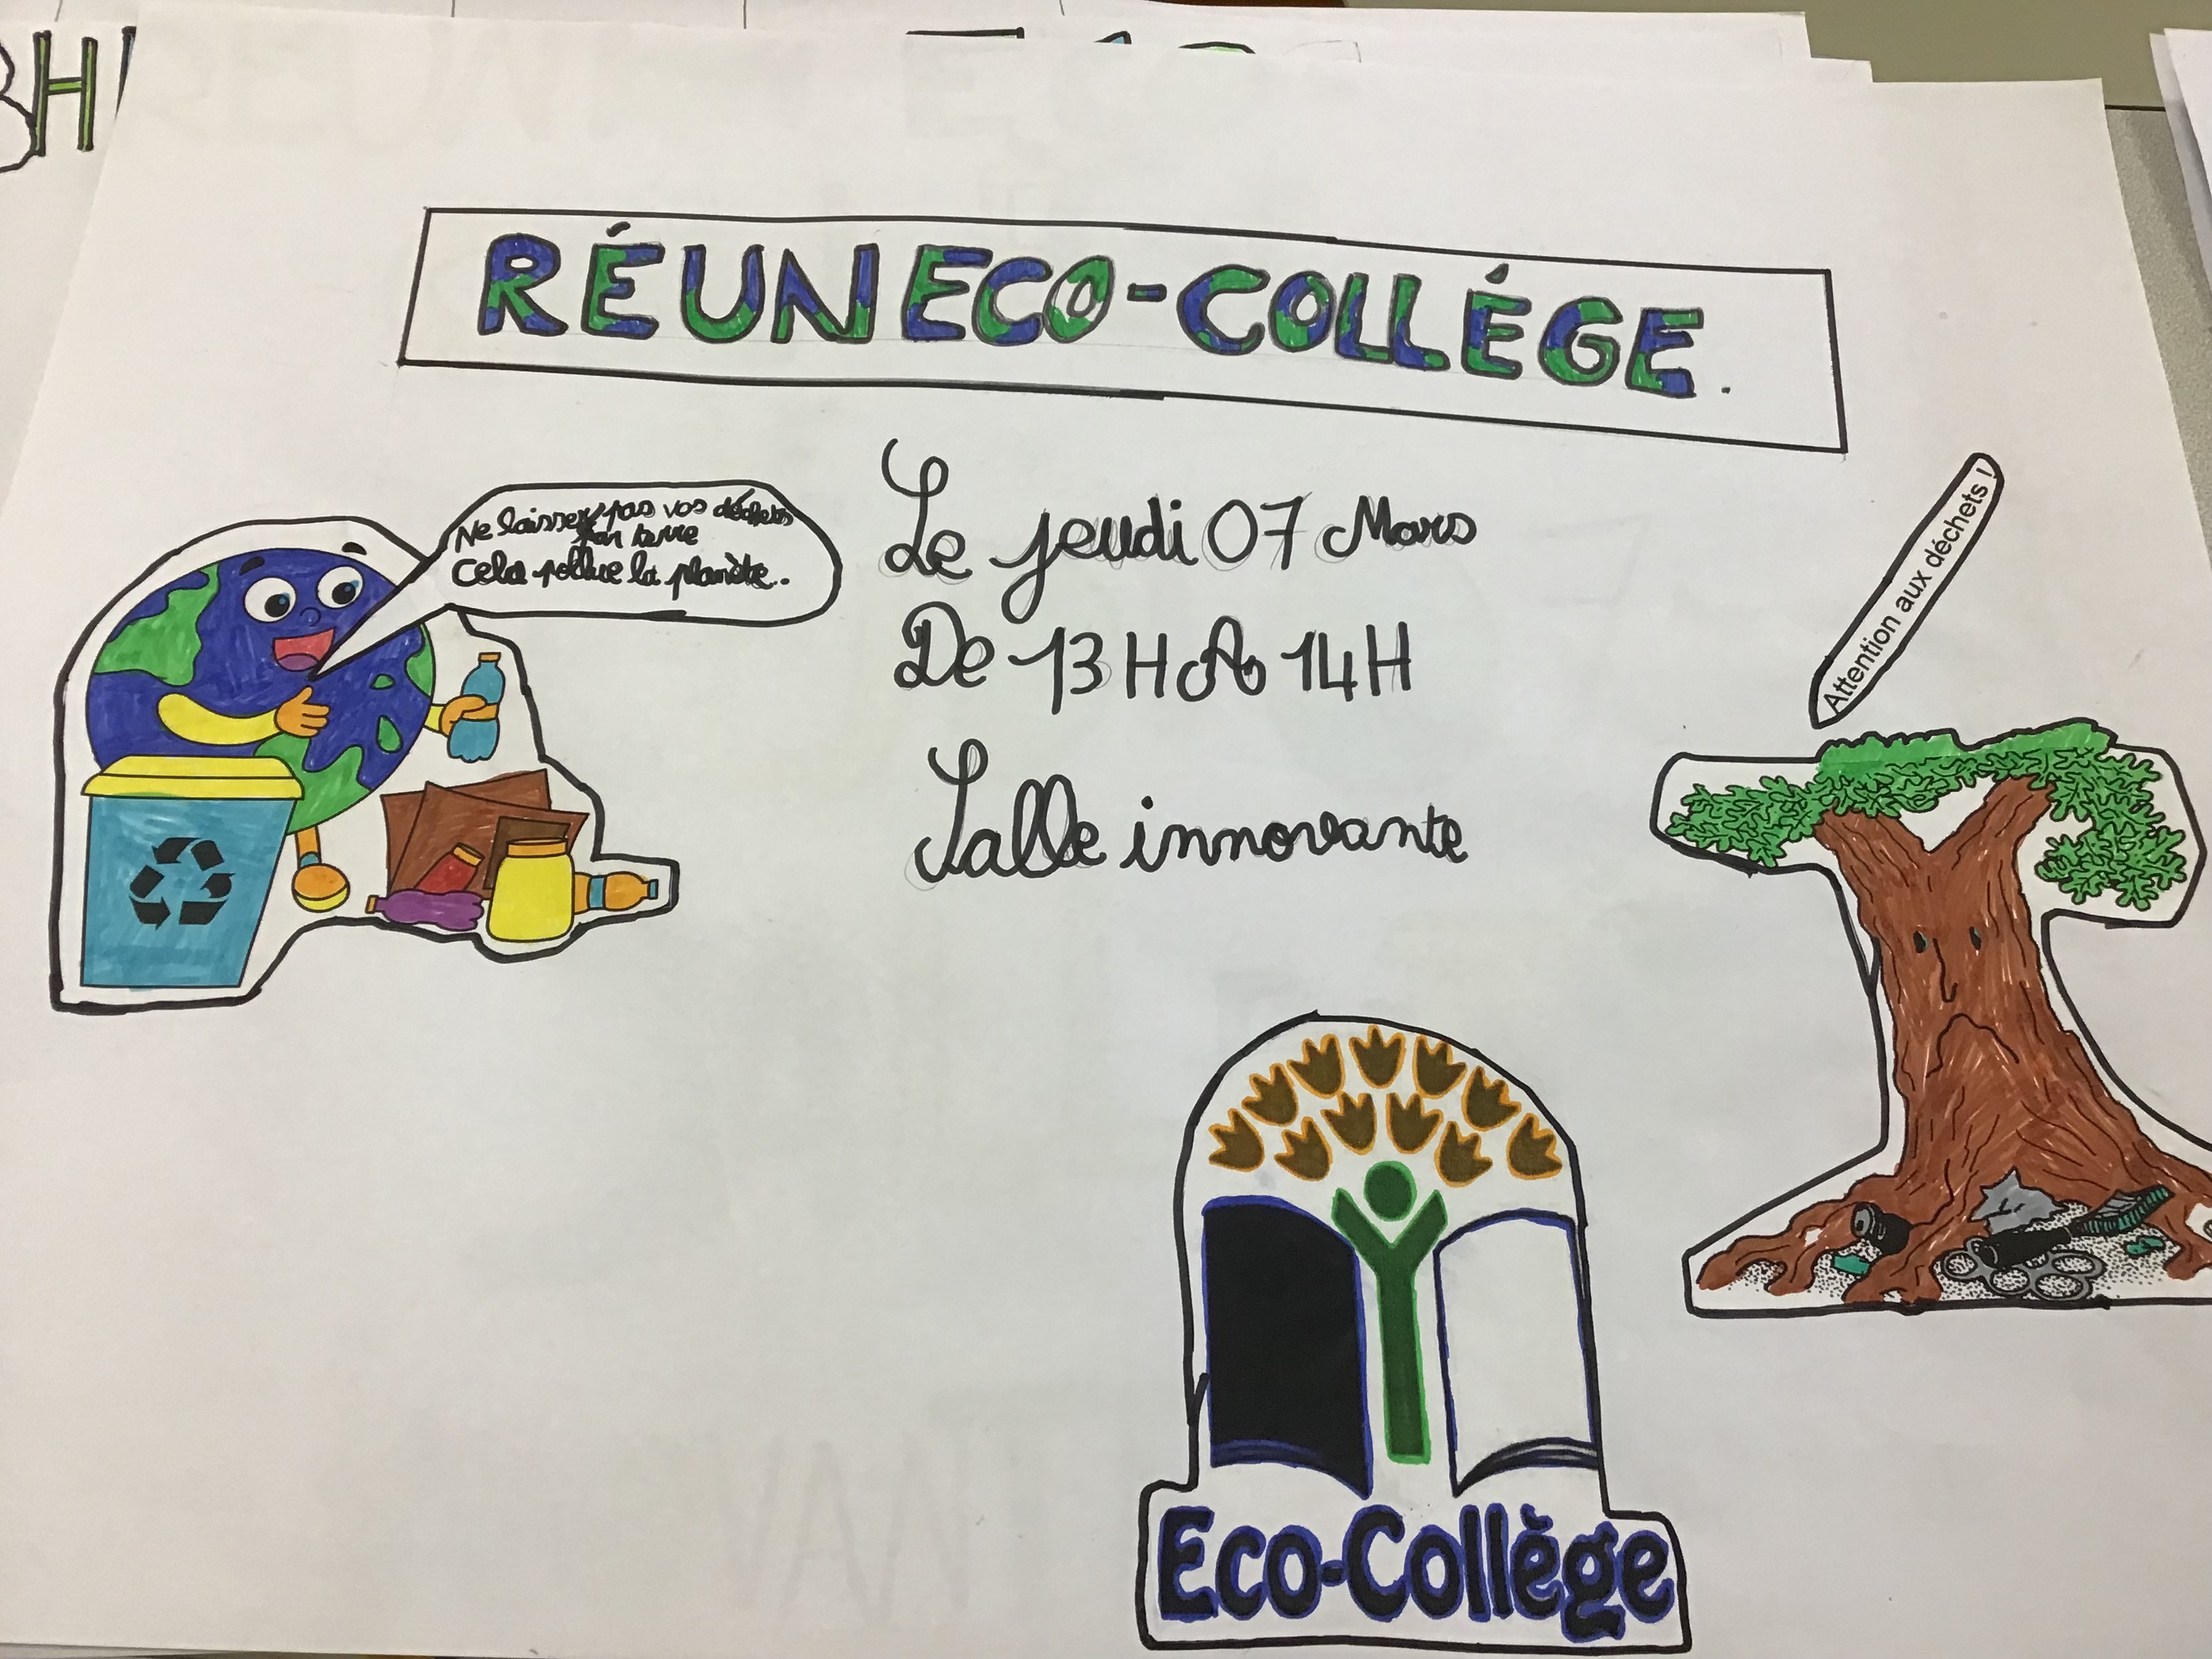 BH
RÉUN ECO-COLLÉGE.
Ne laissez pas vos déchets
par terre
Cela pollue la planète.
Le jeudi 07 Mars
De 13H A 14H
Salle innovante
Attention aux déchets !
Eco-Collège